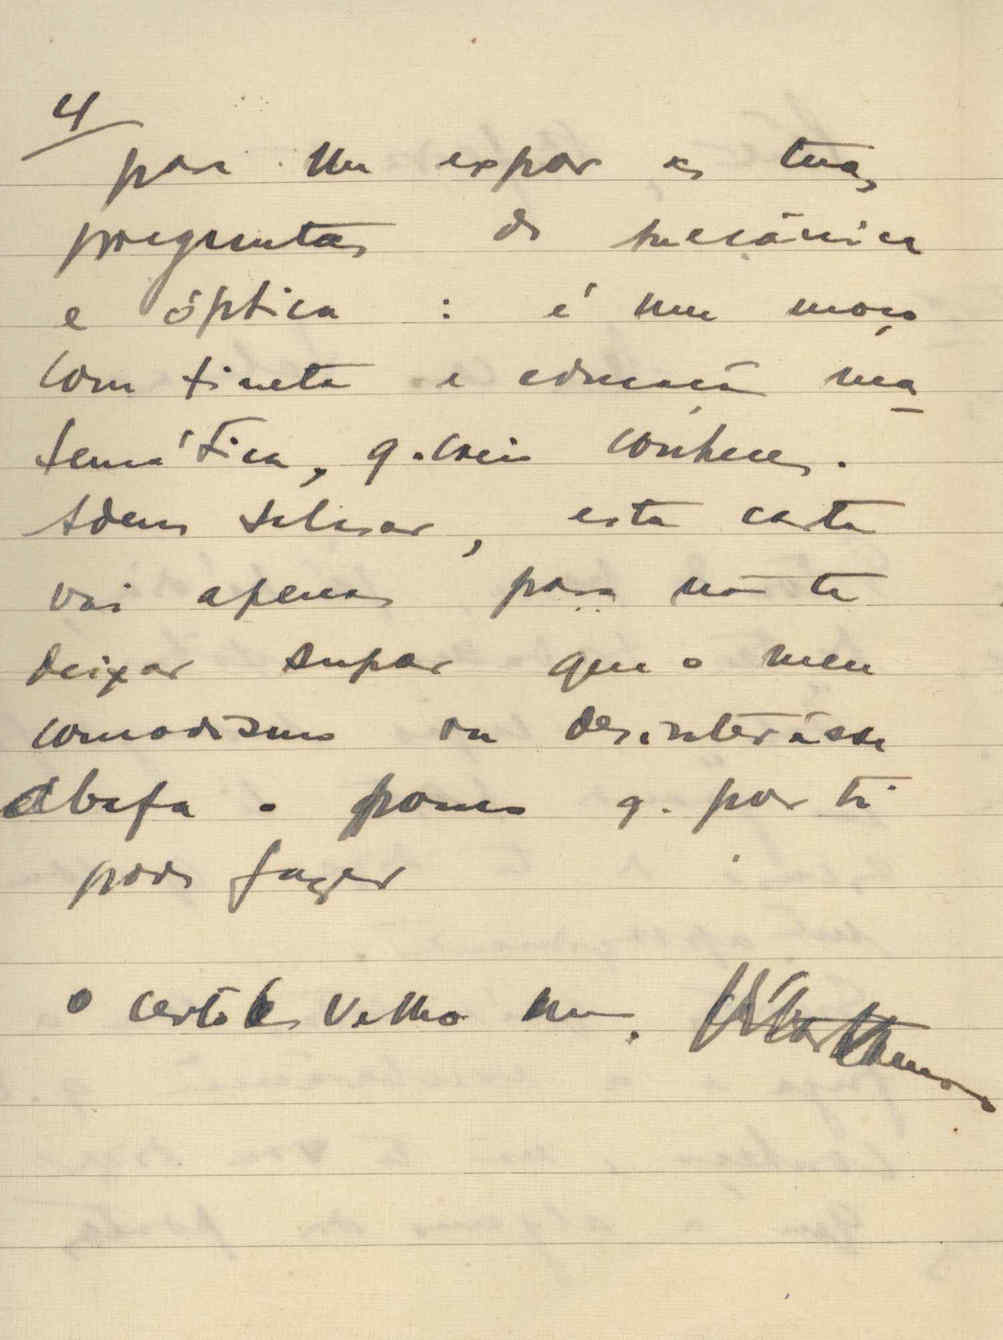 4
para lhe expor as tuas
preguntas de mecânica
e óptica : é um moço
com tineta e educação ma
temática, q. creio conheces.
Adeus, esta carta
vai apenas para não te
deixar supor que o meu
comodismo ou desinterêsse
abafa o pouco q. por ti
pode fazer
o certo e velho